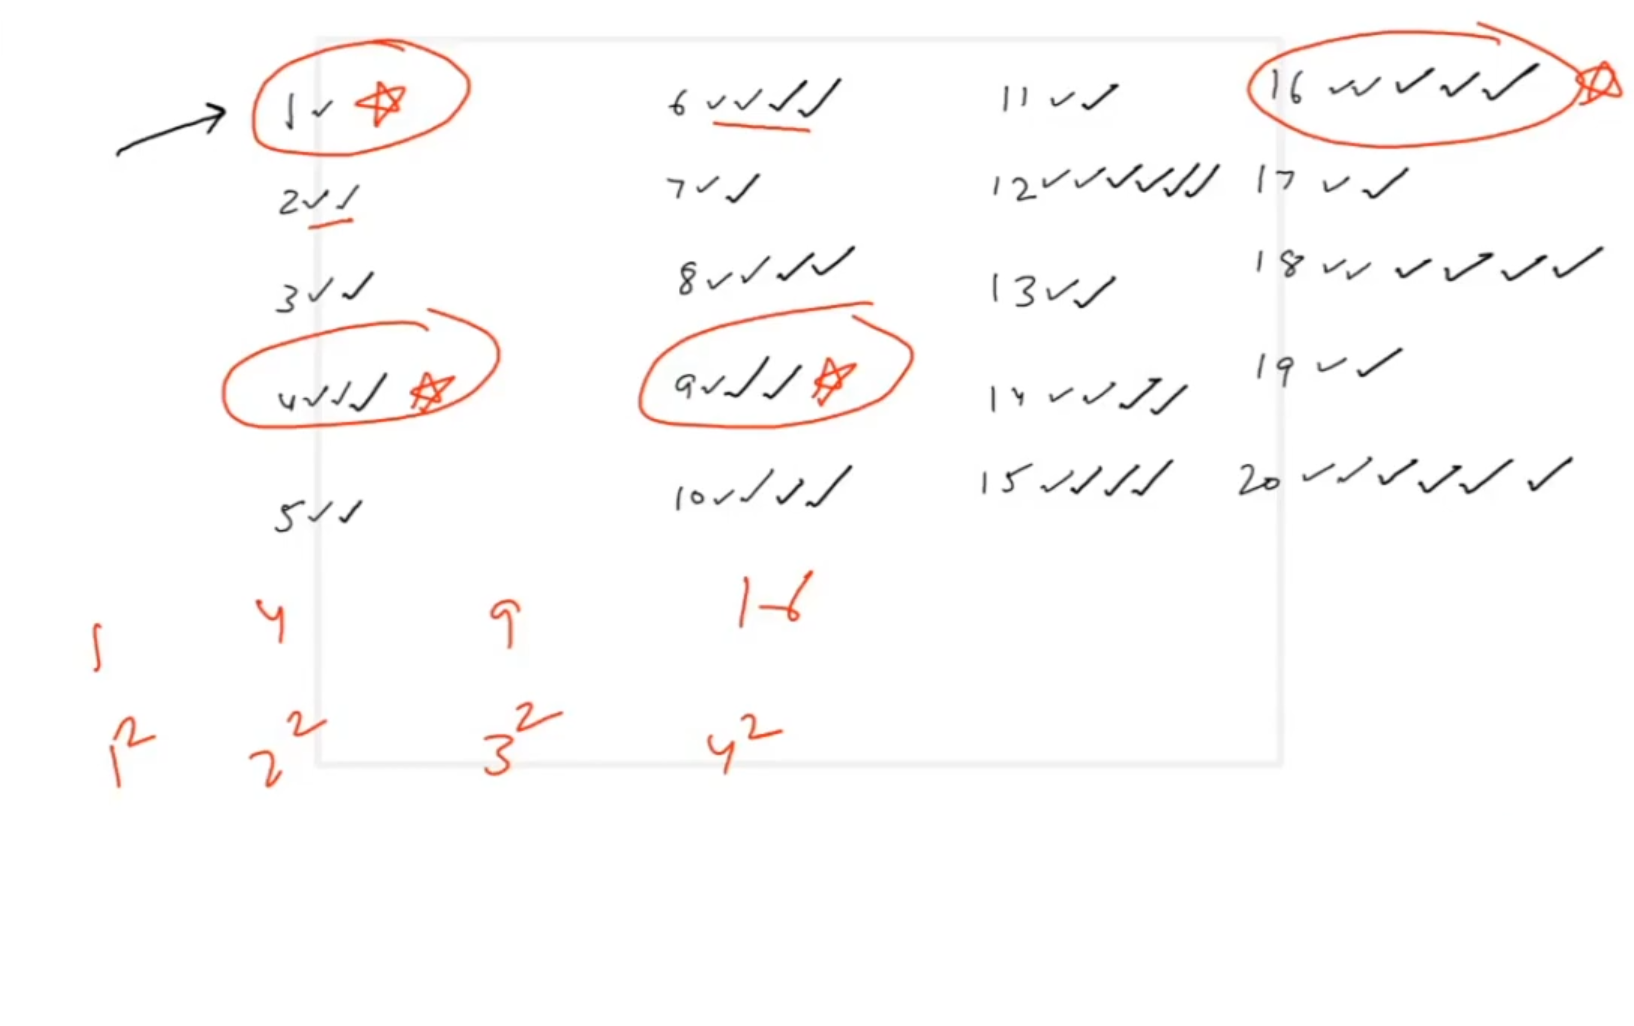 1 ✓ ☆
2 ✓ ✓
3 ✓ ✓
4 ✓ ✓ ✓ ☆
5 ✓ ✓
6 ✓ ✓ ✓ ✓
7 ✓ ✓
8 ✓ ✓ ✓ ✓
9 ✓ ✓ ✓ ☆
10 ✓ ✓ ✓ ✓
11 ✓ ✓
12 ✓ ✓ ✓ ✓ ✓ ✓
13 ✓ ✓
14 ✓ ✓ ✓ ✓
15 ✓ ✓ ✓ ✓
16 ✓ ✓ ✓ ✓ ✓ ☆
17 ✓ ✓
18 ✓ ✓ ✓ ✓ ✓ ✓
19 ✓ ✓
20 ✓ ✓ ✓ ✓ ✓ ✓
1 4 9 16
1² 2² 3² 4²